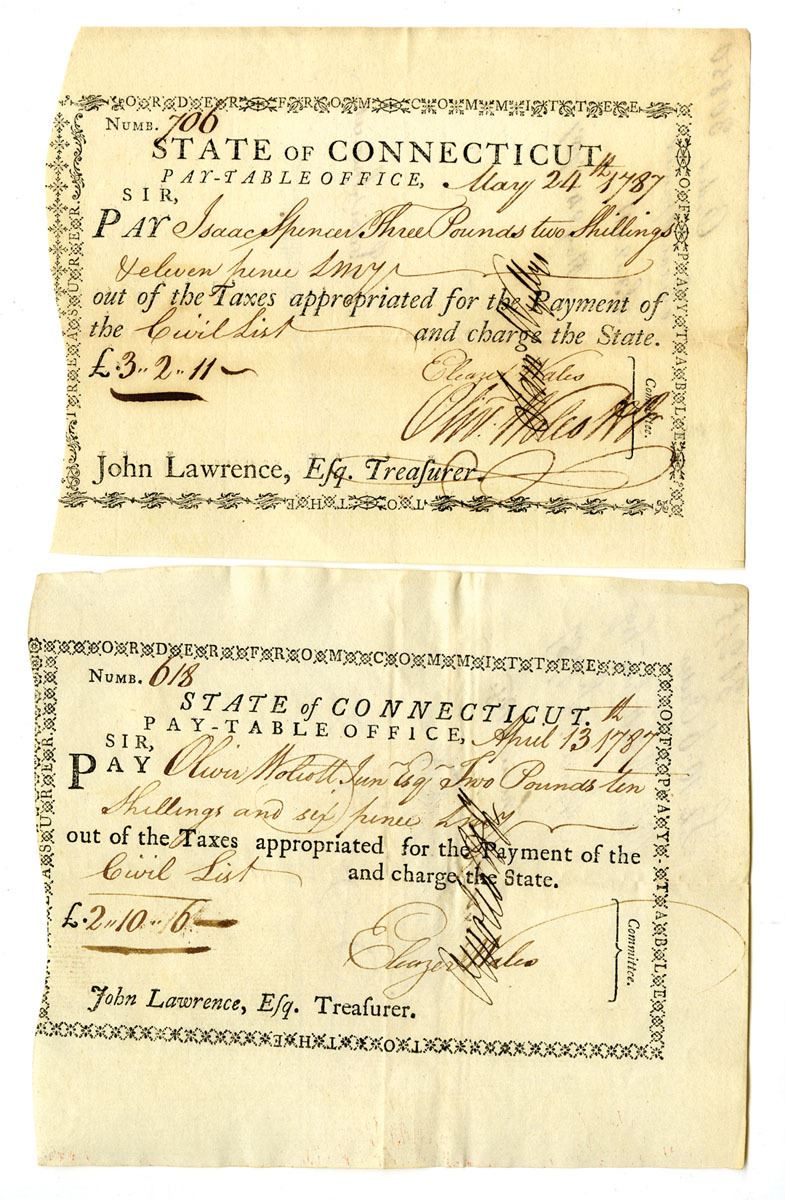 ORDER FROM COMMITTEE
OF PAY TABLE
TO THE
TREASURER.
NUMB. 706
STATE OF CONNECTICUT.
PAY-TABLE OFFICE, May 24th 1787
SIR,
PAY Isaac Spencer Three Pounds two Shillings
& eleven pence LMy
out of the Taxes appropriated for the Payment of
the Civil List and charge the State.
£.3 " 2 " 11
Eleazer Wales
Olivr. Wolcott Jr
Committee.
John Lawrence, Esq. Treasurer.
ORDER FROM COMMITTEE
OF PAY-TABLE
TO THE
TREASURER.
NUMB. 618
STATE of CONNECTICUT.
PAY-TABLE OFFICE, April 13th 1787
SIR,
PAY Oliver Wolcott Junr Esqr Two Pounds ten
Shillings and six pence LMy
out of the Taxes appropriated for the Payment of the
Civil List and charge the State.
£.2 " 10 " 6
Eleazer Wales
Committee.
John Lawrence, Esq. Treasurer.